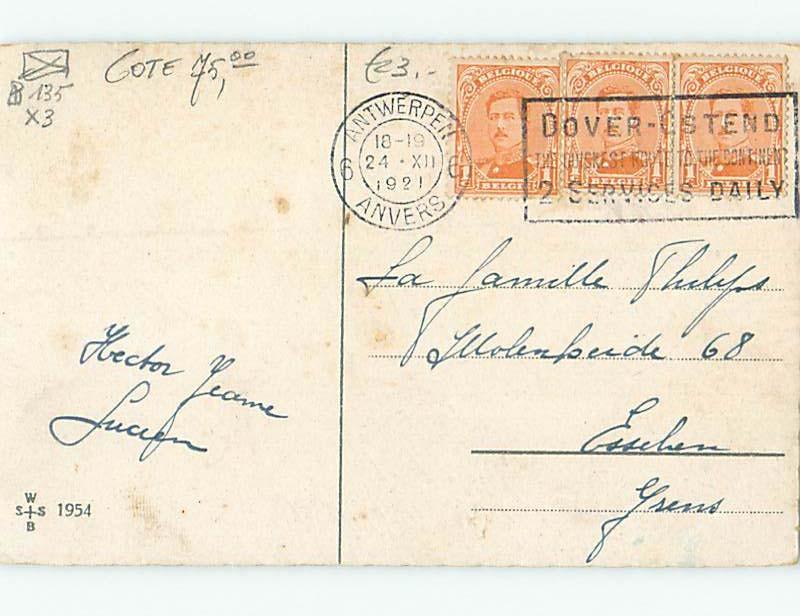 COTE 75,00
€3,-
B 135
X3
BELGIQUE BELGIQUE BELGIQUE
1 1 1 1 1
BELGIE
ANTWERPEN
18-19
24 · XII
1921
6 6
ANVERS
DOVER-OSTEND
THE QUICKEST ROUTE TO THE CONTINENT
2 SERVICES DAILY
La famille Philips
Molenheide 68
Esschen
Grens
Hector Jeanne
Lucien
W
S S 1954
B